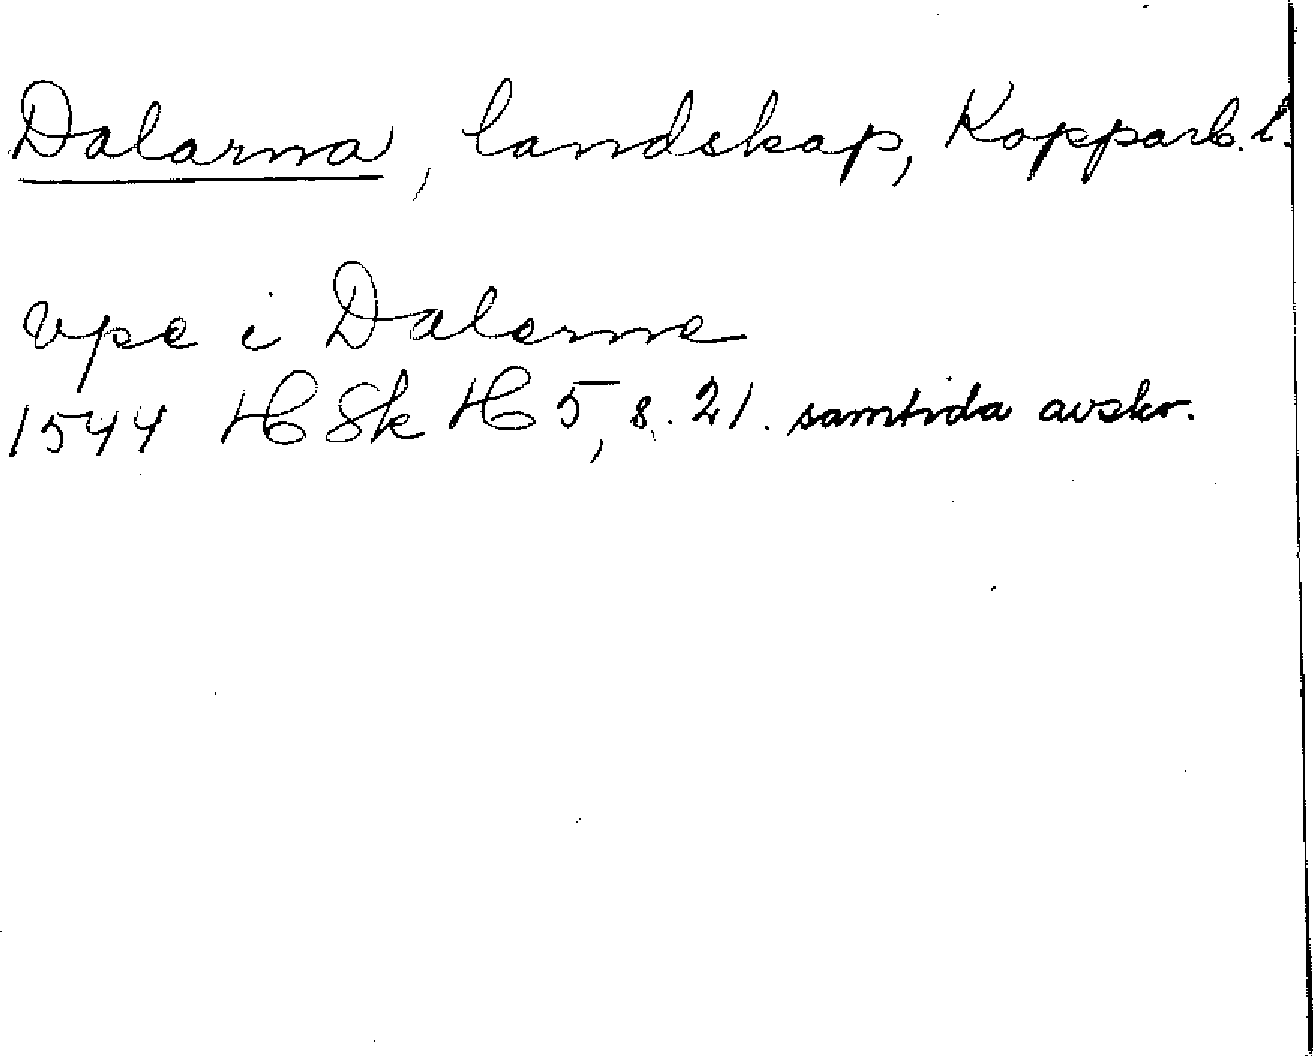 Dalarna, landskap, Kopparb. l.
vpe i Dalerne
1544 HSk H 5, s. 21. samtida avskr.